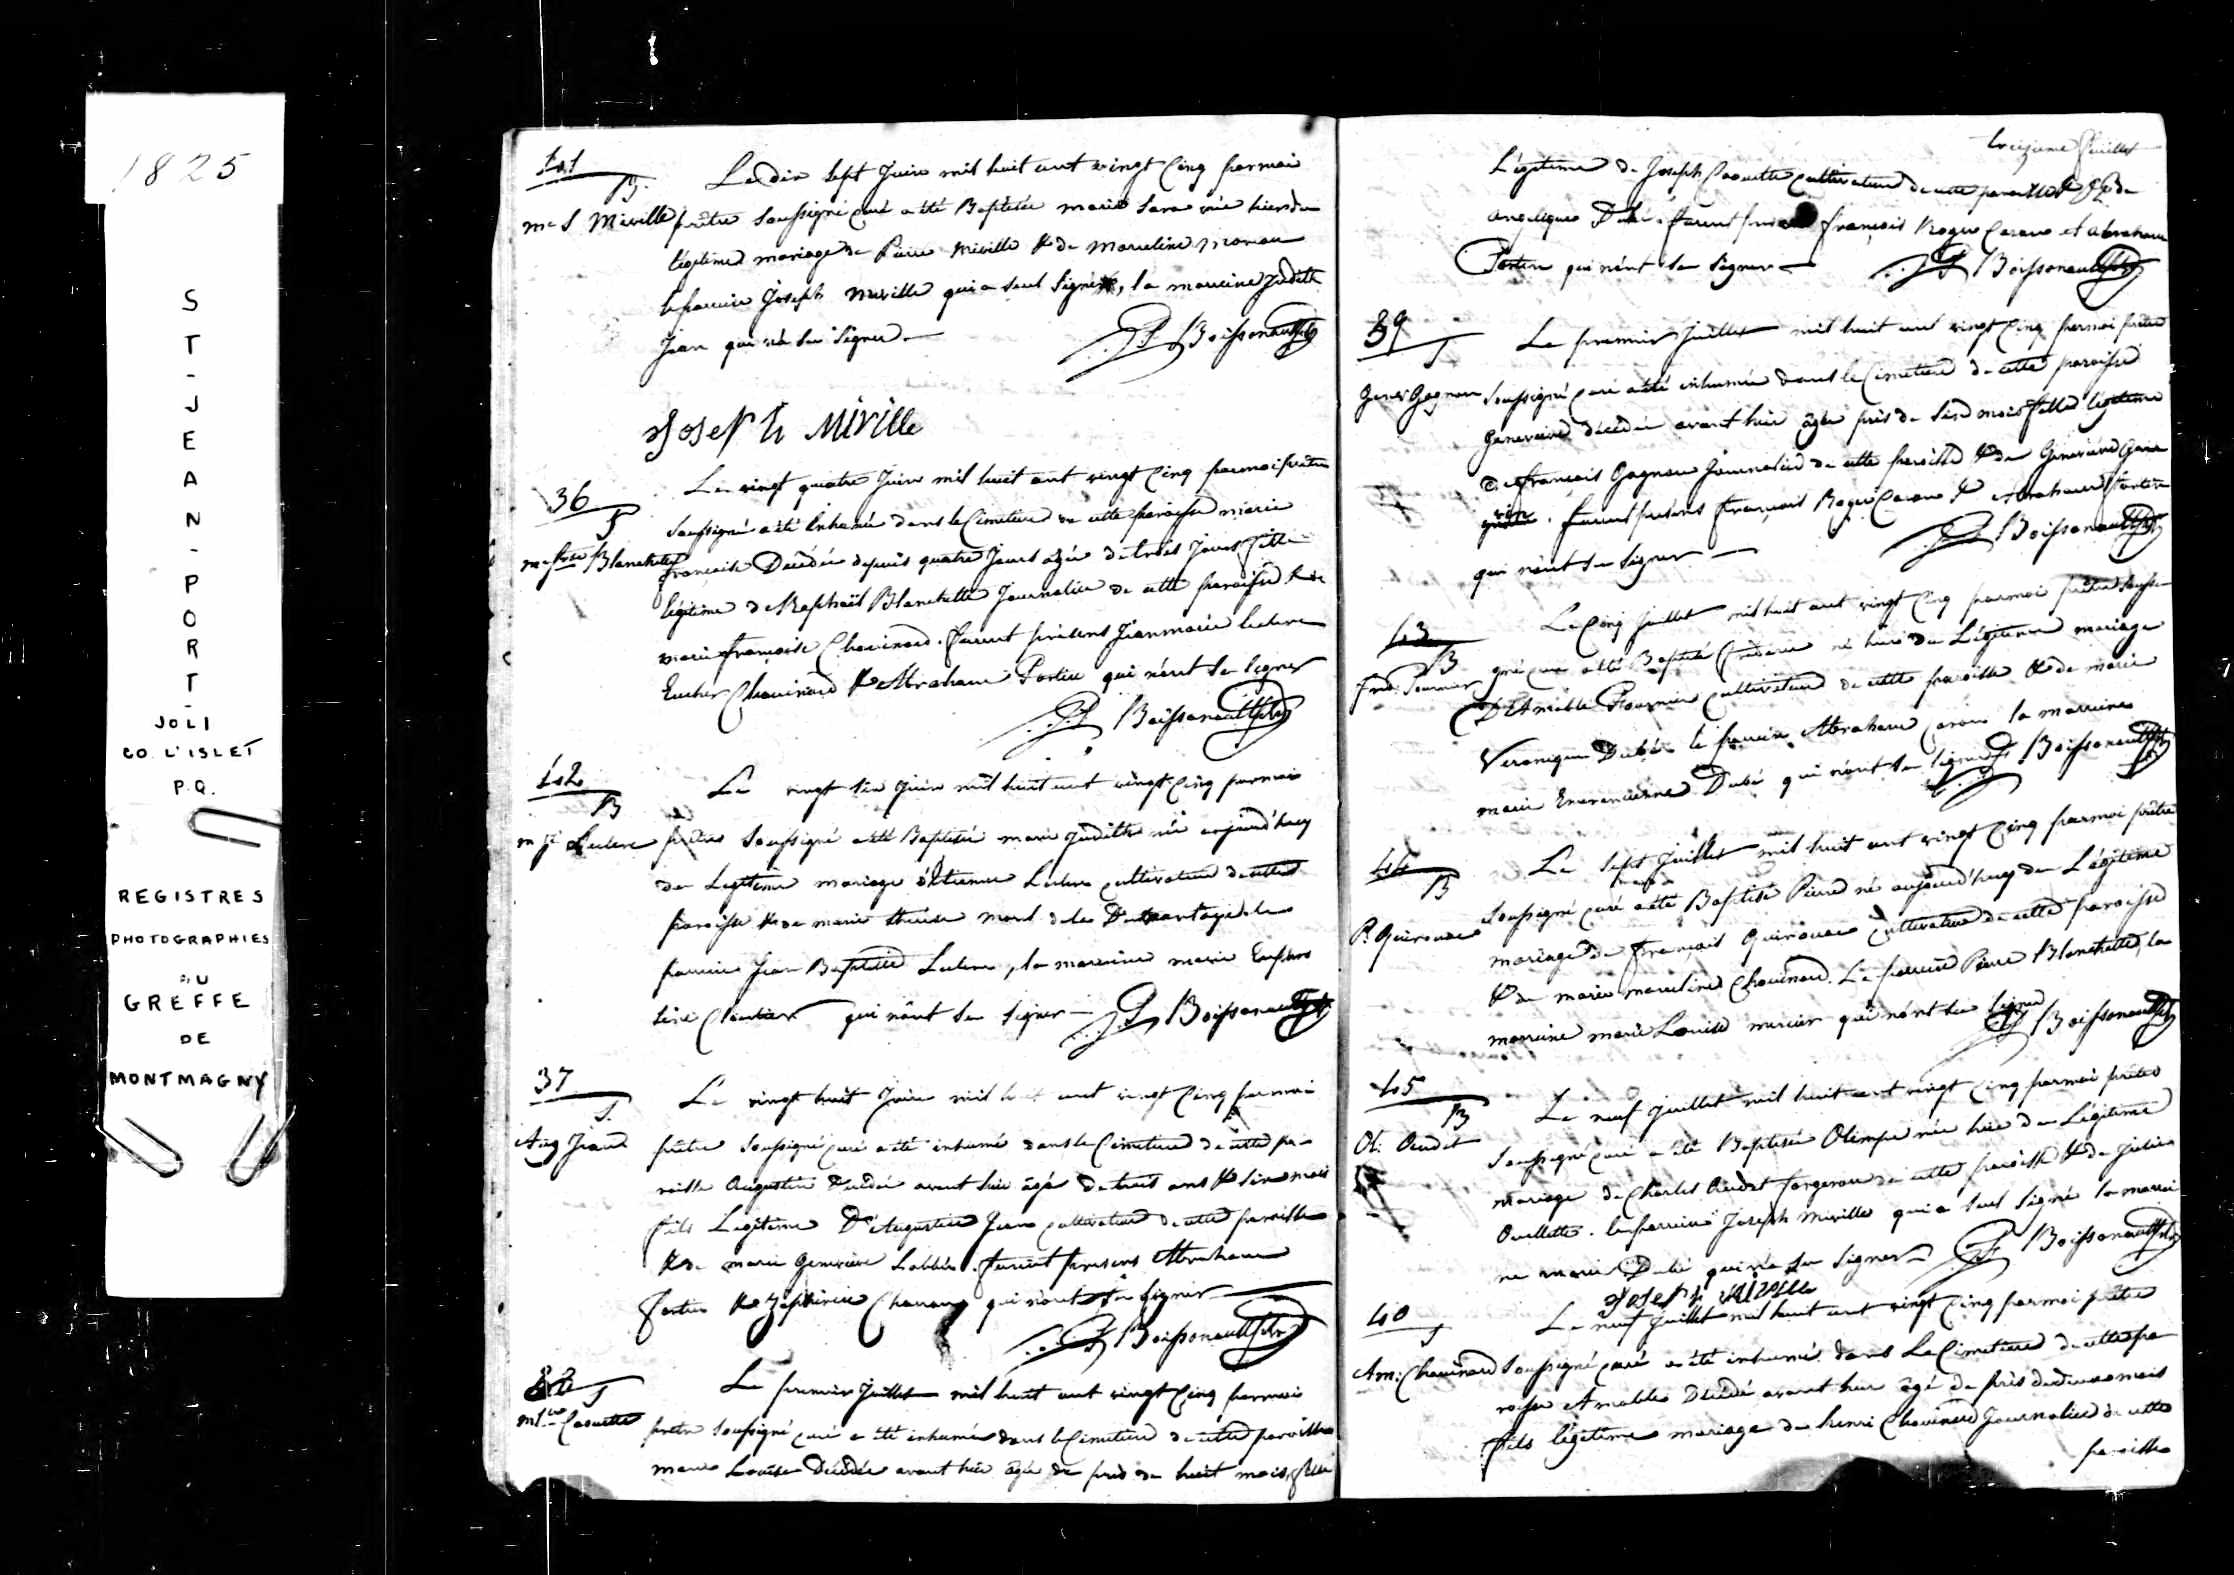 1825
ST-JEAN-PORT-
JOLI
CO. L'ISLET
P.Q.
REGISTRES
PHOTOGRAPHIES
AU
GREFFE
DE
MONTMAGNY
41
B.
Le dix Sept Juin mil huit cent vingt Cinq par moi
me S Miville prêtre Soussigné curé a été Baptisée marie Sara née hier du
légitime mariage de Pierre Miville & de Marceline moreau
le parrain Joseph Miville qui a seul Signé, la marraine Judith
Jean qui n'a su Signer. Boissonault ptre
Joseph Miville
36
S
Le vingt quatre Juin mil huit cent vingt Cinq par moi prêtre
Soussigné a été Inhumée dans le Cimetiere de cette paroisse marie
me frse Blanchette françoise Décédée depuis quatre Jours agée de trois Jours fille
légitime de Raphaël Blanchette Journalier de cette paroisse & de
marie françoise Chouinard. furent présens Jean marie leclerc
Eucher Chouinard & Abraham Fortin qui n'ont su signer
Boissonault ptre
42
B
Le vingt Six Juin mil huit cent vingt Cinq par moi
m jt Leclerc prêtre Soussigné a été Baptisée marie Judithe née aujourd'huy
du Legitime mariage d'Etienne Leclerc cultivateur de cette
paroisse & de marie therèse morel de la Durantaye. le
parrain Jean Baptiste Leclerc, la marraine marie
Cloutier qui n'ont su signer Boissonault ptre
37
S.
Le vingt huit Juin mil huit cent vingt Cinq par moi
Aug Jean prêtre Soussigné curé a été inhumé dans le Cimetiere de cette pa-
roisse Augustin Décédé avant hier âgé de trois ans & six mois
fils Légitime D'Augustin Jean cultivateur de cette paroisse
& de marie Geneviève Labbée. furent présens Abraham
Fortin & Zephirin qui n'ont su signer
Boissonault ptre
38
S
Le premier Juillet mil huit cent vingt Cinq par moi
m Lse Caouette prêtre Soussigné curé a été inhumée dans le Cimetiere de cette paroisse
marie Louise Décédée avant hier âgée de près de huit mois, fille
treizieme feuillet
Légitime de Joseph Caouette cultivateur de cette paroisse & de
angelique Dubé. furent présens françois Roque Caron et Abraham
Fortin qui n'ont su signer Boissonault ptre
39
S
Le premier Juillet mil huit cent vingt Cinq par moi prêtre
Genev. Gagnon Soussigné curé a été inhumée dans le Cimetiere de cette paroisse
Geneviève décédée avant hier âgée près de Six mois fille légitime
de François Gagnon Journalier de cette paroisse & de Geneviève
furent présens François Roque Caron & Abraham Fortin
qui n'ont su signer Boissonault ptre
43
B
Le Cinq Juillet mil huit cent vingt Cinq par moi prêtre Soussi-
Fred. Fournier gné curé a été Baptisé fréderic né hier du Légitime mariage
D'Amable Fournier cultivateur de cette paroisse & de marie
Veronique Dubé. le parrain Abraham Caron la marraine
marie Emerencienne Dubé qui n'ont su signer Boissonault ptre
44
B
Le Sept Juillet mil huit cent vingt Cinq par moi prêtre
P. Quirouac Soussigné curé a été Baptisé Pierre né aujourd'huy du Légitime
mariage de François Quirouac cultivateur de cette paroisse
& de marie marceline Chouinard. Le parrain Pierre Blanchette, la
marraine marie Louise mercier qui n'ont su signer Boissonault ptre
45
B
Le neuf Juillet mil huit cent vingt Cinq par moi prêtre
Ol: Oudet Soussigné curé a été Baptisée Olimpe née hier du Légitime
mariage de Charles Oudet forgeron de cette paroisse & de Julie
Ouellette. le parrain Joseph Miville qui a seul Signé la marrai
ne marie Dubé qui n'a su Signer Boissonault ptre
Joseph Miville
40
S
Le neuf Juillet mil huit cent vingt Cinq par moi prêtre
Am: Chouinard Soussigné curé a été inhumé dans Le Cimetiere de cette pa
roisse Amable Décédé avant hier âgé de près de deux mois
fils légitime mariage de henri Chouinard Journalier de cette
paroisse